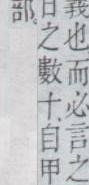 義也而必言之
日之數十自甲
部。